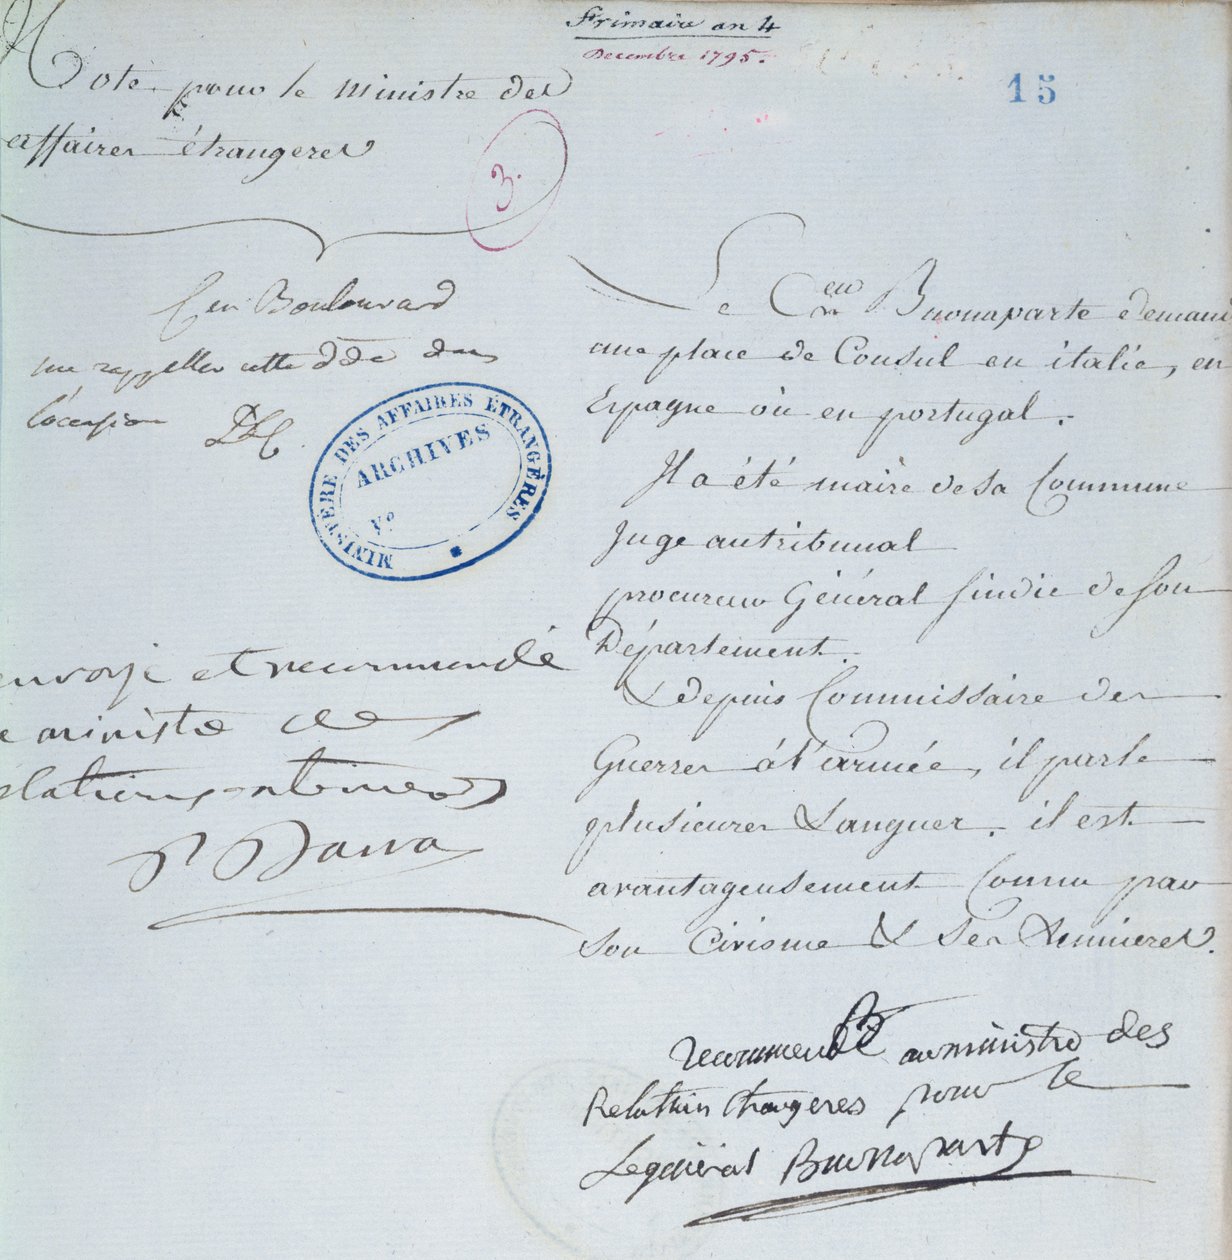 Frimaire an 4
Decembre 1795.
15
Note pour le Ministre des
affaires étrangeres
3.
Cen Boulouvard
me rappeller cette dde dans
l'occasion DLC.
MINISTÈRE DES AFFAIRES ÉTRANGÈRES
ARCHIVES
Le Cen Buonaparte demand
une place de Consul en italie, en
Espagne où en portugal.
Il a été maire de sa Commune
Juge au tribunal
procureur Général sindic de son
Département.
& depuis Commissaire des
Guerres à l'armée, il parle
plusieures Langues. il est
avantageusement Connu par
son Civisme & ses Lumieres.
envoyé et recommandé
ministre des
relations exterieures
P Barras
recommendé au ministre des
Relation Etrangeres pour le
Le général Buonaparte